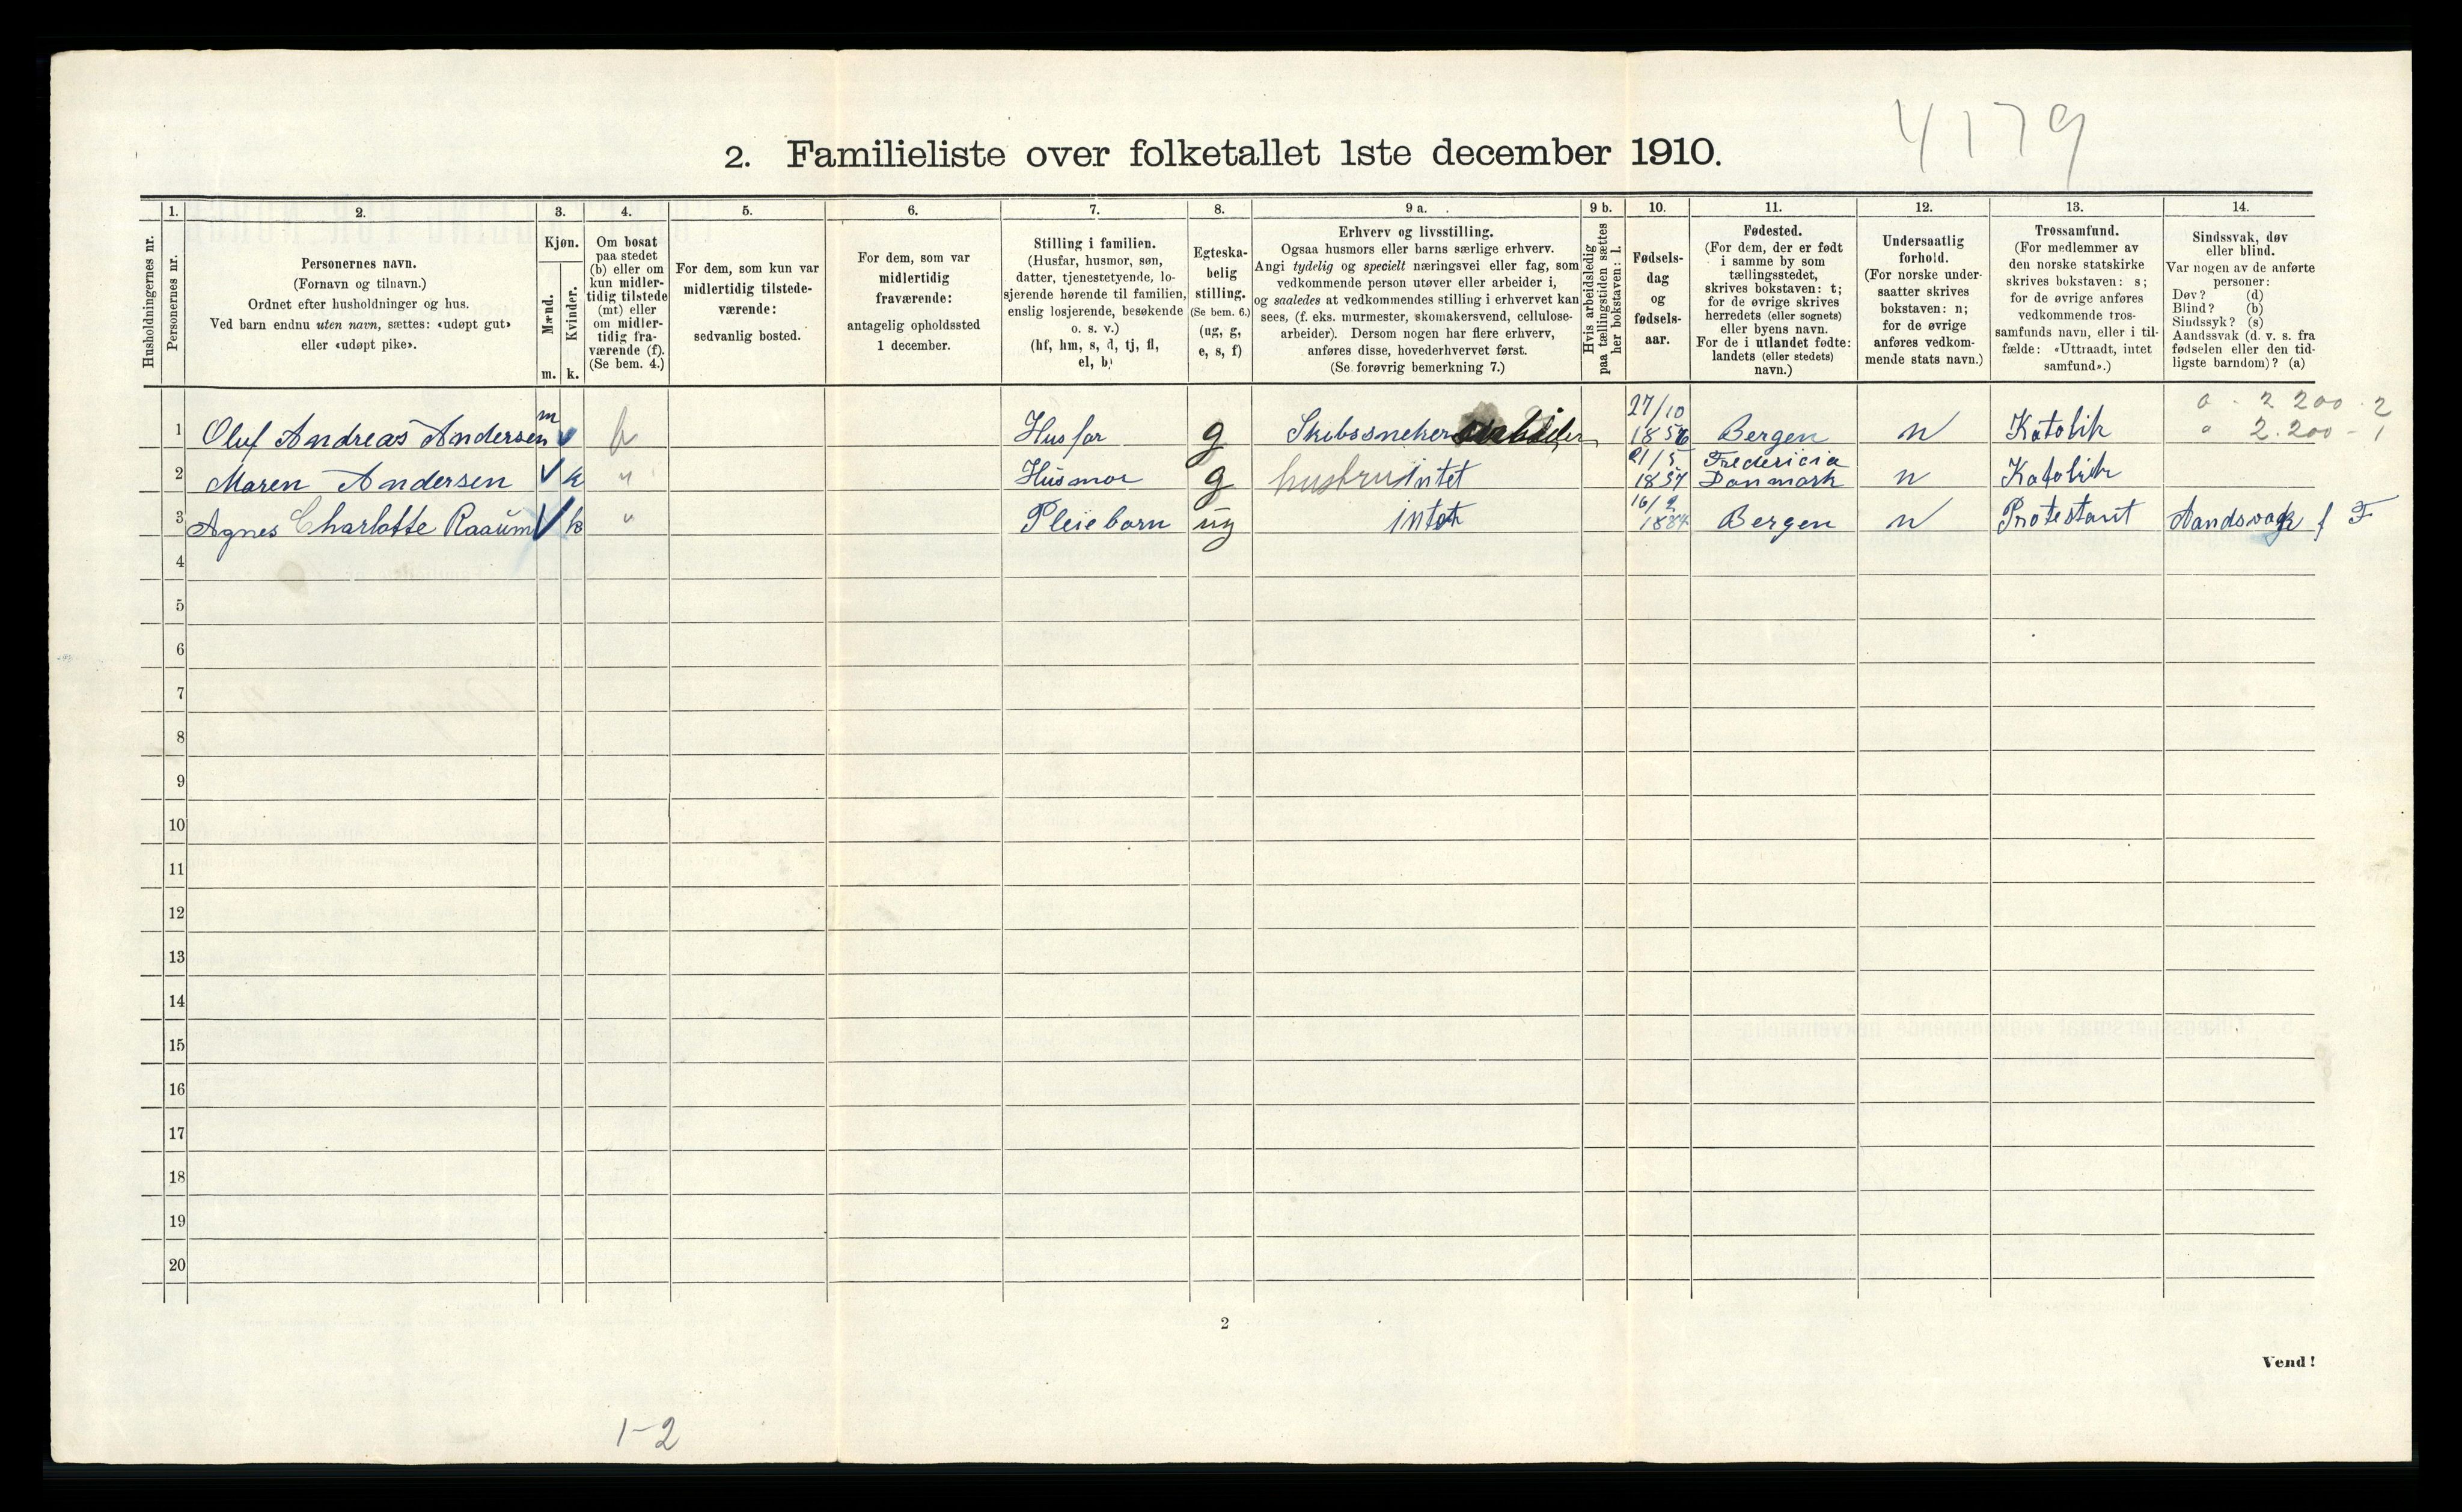 4179
2. Familieliste over folketallet 1ste december 1910.
1. 2. 3. 4. 5. 6. 7. 8. 9 a. 9 b. 10. 11. 12. 13. 14.
Husholdningernes nr.
Personernes nr.
Personernes navn.
(Fornavn og tilnavn.)
Ordnet efter husholdninger og hus.
Ved barn endnu uten navn, sættes: «udøpt gut»
eller «udøpt pike».
Kjøn.
Mænd.
Kvinder.
m. k.
Om bosat
paa stedet
(b) eller om
kun midler-
tidig tilstede
(mt) eller
om midler-
tidig fra-
værende (f).
(Se bem. 4.)
For dem, som kun var
midlertidig tilstede-
værende:
sedvanlig bosted.
For dem, som var
midlertidig
fraværende:
antagelig opholdssted
1 december.
Stilling i familien.
(Husfar, husmor, søn,
datter, tjenestetyende, lo-
sjerende hørende til familien,
enslig losjerende, besøkende
o. s. v.)
(hf, hm, s, d, tj, fl,
el, b)
Egteska-
belig
stilling.
(Se bem. 6.)
(ug, g,
e, s, f)
Erhverv og livsstilling.
Ogsaa husmors eller barns særlige erhverv.
Angi tydelig og specielt næringsvei eller fag, som
vedkommende person utøver eller arbeider i,
og saaledes at vedkommendes stilling i erhvervet kan
sees, (f. eks. murmester, skomakersvend, cellulose-
arbeider). Dersom nogen har flere erhverv,
anføres disse, hovederhvervet først.
(Se forøvrig bemerkning 7.)
Hvis arbeidsledig
paa tællingstiden sættes
her bokstaven: l.
Fødsels-
dag
og
fødsels-
aar.
Fødested.
(For dem, der er født
i samme by som
tællingsstedet,
skrives bokstaven: t;
for de øvrige skrives
herredets (eller sognets)
eller byens navn.
For de i utlandet fødte:
landets (eller stedets)
navn.)
Undersaatlig
forhold.
(For norske under-
saatter skrives
bokstaven: n;
for de øvrige
anføres vedkom-
mende stats navn.)
Trossamfund.
(For medlemmer av
den norske statskirke
skrives bokstaven: s;
for de øvrige anføres
vedkommende tros-
samfunds navn, eller i til-
fælde: «Uttraadt, intet
samfund».)
Sindssvak, døv
eller blind.
Var nogen av de anførte
personer:
Døv? (d)
Blind? (b)
Sindssyk? (s)
Aandssvak (d. v. s. fra
fødselen eller den tid-
ligste barndom)? (a)
0 - 2 200 - 2
0 2.200 - 1
1 Oluf Andreas Andersen m b Husfar g Skibssneker 27/10 1856 Bergen n Katolik
2 Maren Andersen k " Husmor g hustru intet 21/5 1857 Fredericia Danmark n Katolik
3 Agnes Charlotte Raaum k " Pleiebarn ug intet 16/2 1884 Bergen n Protestant Aandsvag f F
4
5
6
7
8
9
10
11
12
13
14
15
16
17
18
19
20
2
Vend!
1-2